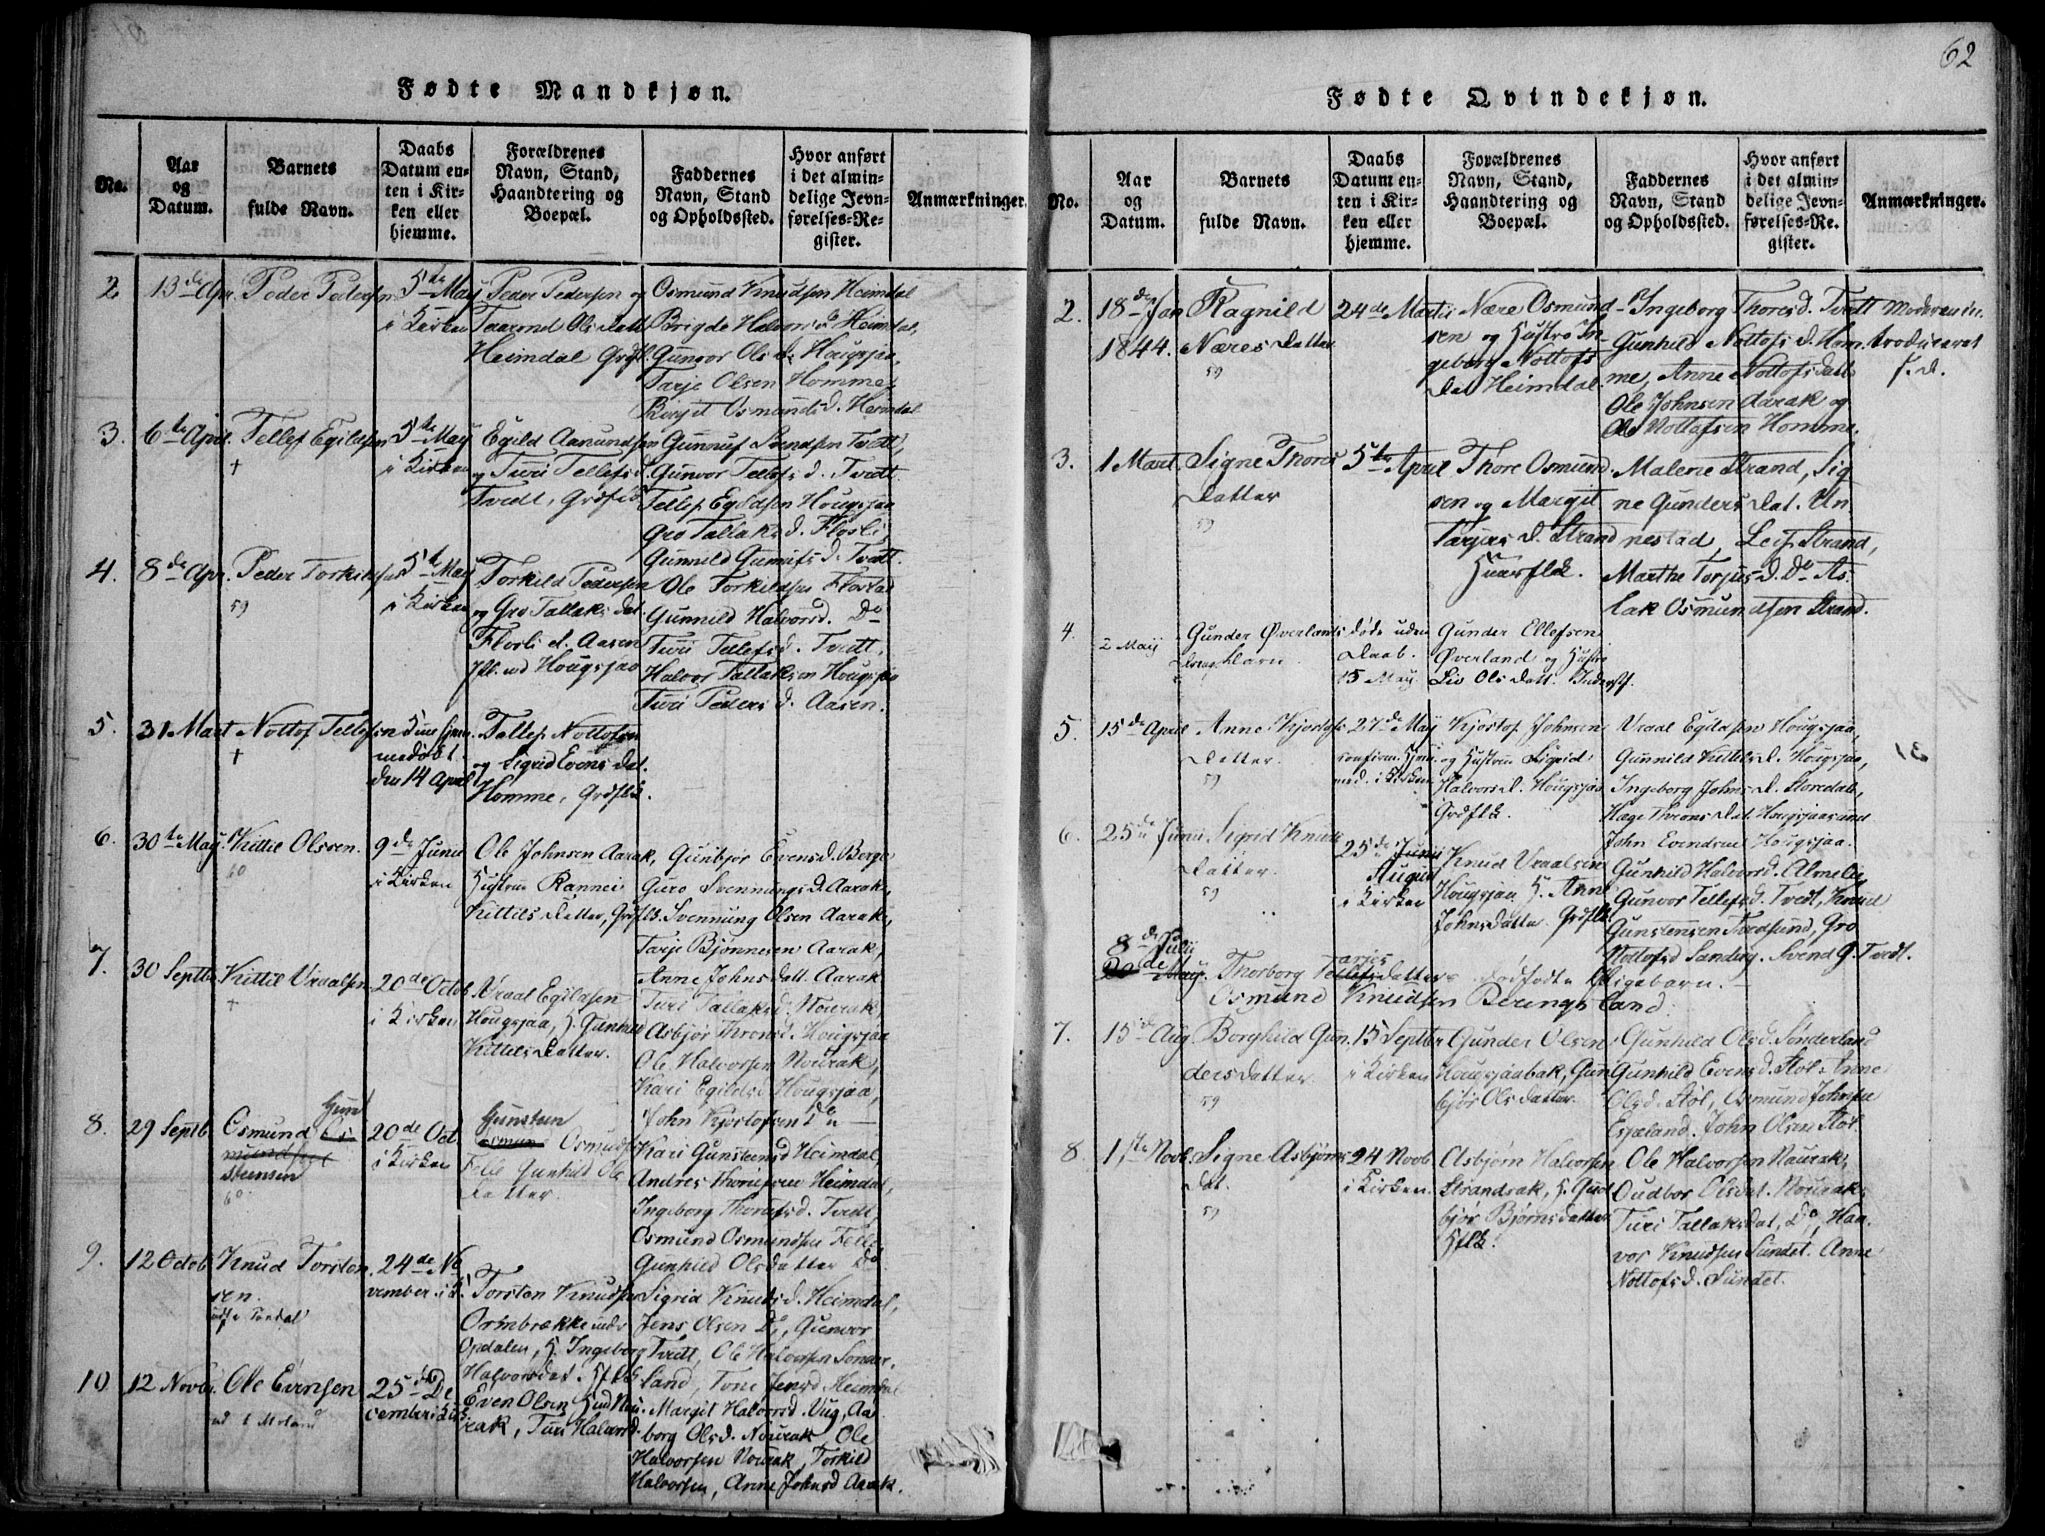 62
Fødte Mandkjøn.
No.
Aar
og
Datum.
Barnets
fulde Navn.
Daabs
Datum en-
ten i Kir-
ken eller
hjemme.
Forældrenes
Navn, Stand,
Haandtering og
Boepæl.
Faddernes
Navn, Stand
og Opholdssted.
Hvor anført
i det almin-
delige Jevn-
førelses-Re-
gister.
Anmærkninger.
2. 13de Apr. Peder Pedersen
5te May
i Kirken
Peder Pedersen og
Taarand Olsdatt
Heimdal
Osmund Knudsen Heimdal
Brigde Halvorsd Heimdal,
Gunvor Olsd. Hougsjaa,
Tarje Olsen Homme,
Birgit Osmundsd. Heimdal
3. 6te April. Tellef Egildsen
+
5te May
i Kirken
Egild Aanundsen
og Turi Tellefsd
Tvedt,
Gunnuf Svendsen Tvedt,
Gunvor Tellefs d. Tvedt
Tellef Egildsen Hougsjaa
Gro Tallaks d. Flosli
Gunnild Gunnufs d. Tvedt.
4. 8de Apr. Peder Torkildsen
59
5te May
i Kirken
Torkild Pedersen
og Gro Tallaks dat.
Flosli el. Aasen
Hougsjaa
Ole Torkildsen
Gunnild Halvorsd. Do
Turi Tellefsd. Tvedt,
Halvor Tallaksen Hougsjaa
Turi Peders d. Aasen.
5. 31 Mart Nottof Tellefsen
+
medøbt
den 14 April
Tellef Nottofsen
og Sigrid Evens dat.
Homme,
6. 30te May Kittil Olssen.
60
9de Junii
i Kirken
Ole Johnsen Aarak,
Hustrue Rannei
Kittils Datter,
Gunbjør Evensd. Berge
Guro Svennungs D. Aarak,
Svennung Olsen Aarak,
Tarje Bjønnesen Aarak,
Anne Johnsdatt. Aarak
7. 30 Septbr Kittil Vraalsen
+
20de Octob
i Kirken
Vraal Egildsen
Hougsjaa, H. Gunhild
Kittils Datter.
Turi Tallaksd. Nourak,
Asbjør Thronsd. Hougsjaa
Ole Halvorsen Nourak,
Kari Egildsd Hougsjaa,
John Kjøstofsen Do
8. 29 Septb. Osmund
Gun
steensen
60
20de Oct
i Kirken
Gunsteen
Osmunds
Felle Gunhild Ols
Datter.
Kari Gunsteensd Heimdal,
Andres Thorufsen Heimdal,
Ingeborg Thorufsd. Tvedt
Osmund Osmundsen Felle
Gunhild Olsdatter Do.
9. 12 Octob Knud Torsten
sen.
24de No
vember i K.
Torsten Knudsen
Ormbrække
Opdalen, H. Ingeborg
Halvorsdat.
Sigrid Knudsd. Heimdal,
Jens Olsen Do, Gunvor
Tvedt, Ole Halvorsen Sønder-
land, Tone Jensd Heimdal
10 12 Novbr. Ole Evensen
25de De
cember i Kirk
Even Olsen Nou
rak, Turi Halvorsd.
Margit Halvorsd. Vug, Aa
borg Olsd. Nourak Ole
Halvorsen Nourak, Torkild
Halvorsen, Anne Johnsd Aarak.
Fødte Qvindekjøn.
No.
Aar
og
Datum.
Barnets
fulde Navn.
Daabs
Datum en-
ten i Kir-
ken eller
hjemme.
Forældrenes
Navn, Stand,
Haandtering og
Boepæl.
Faddernes
Navn, Stand
og Opholdssted.
Hvor anført
i det almin-
delige Jevn-
førelses-Re-
gister.
Anmærkninger.
2. 18de Jan
1844.
Ragnild
Næres Datter
59
24de Martii
Nære Osmund
sen og Hustro In
geborg Nottofs
Dat Heimdal.
Ingeborg Thoresd. Tvedt
Gunhild Nottofs d. Hom
me, Anne Nottofsdatt
Ole Johnsen Aarak og
Ole Nottofsen Homme.
Moderen in
troduceret
s. D.
3. 1 Mart. Signe Thores
Datter
59
5te April
Thore Osmund
sen og Margit
Tarjes D. Strand
Malene Strand, Sig
ne Gunders Dat. Un
nestad, Leif Strand,
Marthe Torjus D. Do As
lak Osmundsen Strand.
4. 2 May
Gunder Øverlands
Barn.
døde uden
Daab.
15 May
Gunder Ellefsen
Øverland og Hustro
Liv Ols Datt.
5. 15de April Anne Kjøstofs
Datter.
59
27de May
confirm. Hjem
med. i Kirken
Kjøstof Johnsen
og Hustrue Sigrid
Halvorsd. Hougsjaa
Vraal Egildsen Hougsjaa,
Gunnild Kittils D. Hougsjaa,
Ingeborg Johns D. Storedal,
Hæge Throns Dat Hougsjaasund
John Evendsen Hougsjaa.
6. 25de Junii Sigrid Knuds
Datter.
59
25de Junii
August
i Kirken
Knud Vraalsen
Hougsjaa H. Anne
Johnsdatter.
Gunhild Halvorsd.
Gunvor Tellefsd. Tvedt, Knud
Gunstensen Tordsund, Gro
Nottofsd Sandvig. Svend G. Tvedt.
8de Julii
Thorborg Tarjesdatter dødfødte Pigebarn.
Osmund Knudsen Beringsland.
7. 15de Aug Borghild Gun
dersdatter
59
15 Septbr
i Kirken
Gunder Olsen
Hougsjaabak, Gun
bjør Olsdatter
Gunhild Olsd. Sønderland
Gunhild Evensd. Støl, Anne
Olsd. Støl, Osmund Johnsen
Espeland. John Olsen Støl
8. 1ste Novb. Signe Asbjørns
Dat.
59
24 Novb
i Kirken.
Asbjørn Halvorsen
Strandrak, H. Gud
bjør Bjørnsdatter
Ole Halvorsen Naurak,
Oudbor Olsdat. Nourak,
Turi Tallaksdat, Do, Han
vor Knudsen Sundet. Anne
Nottofsd. Sundet.